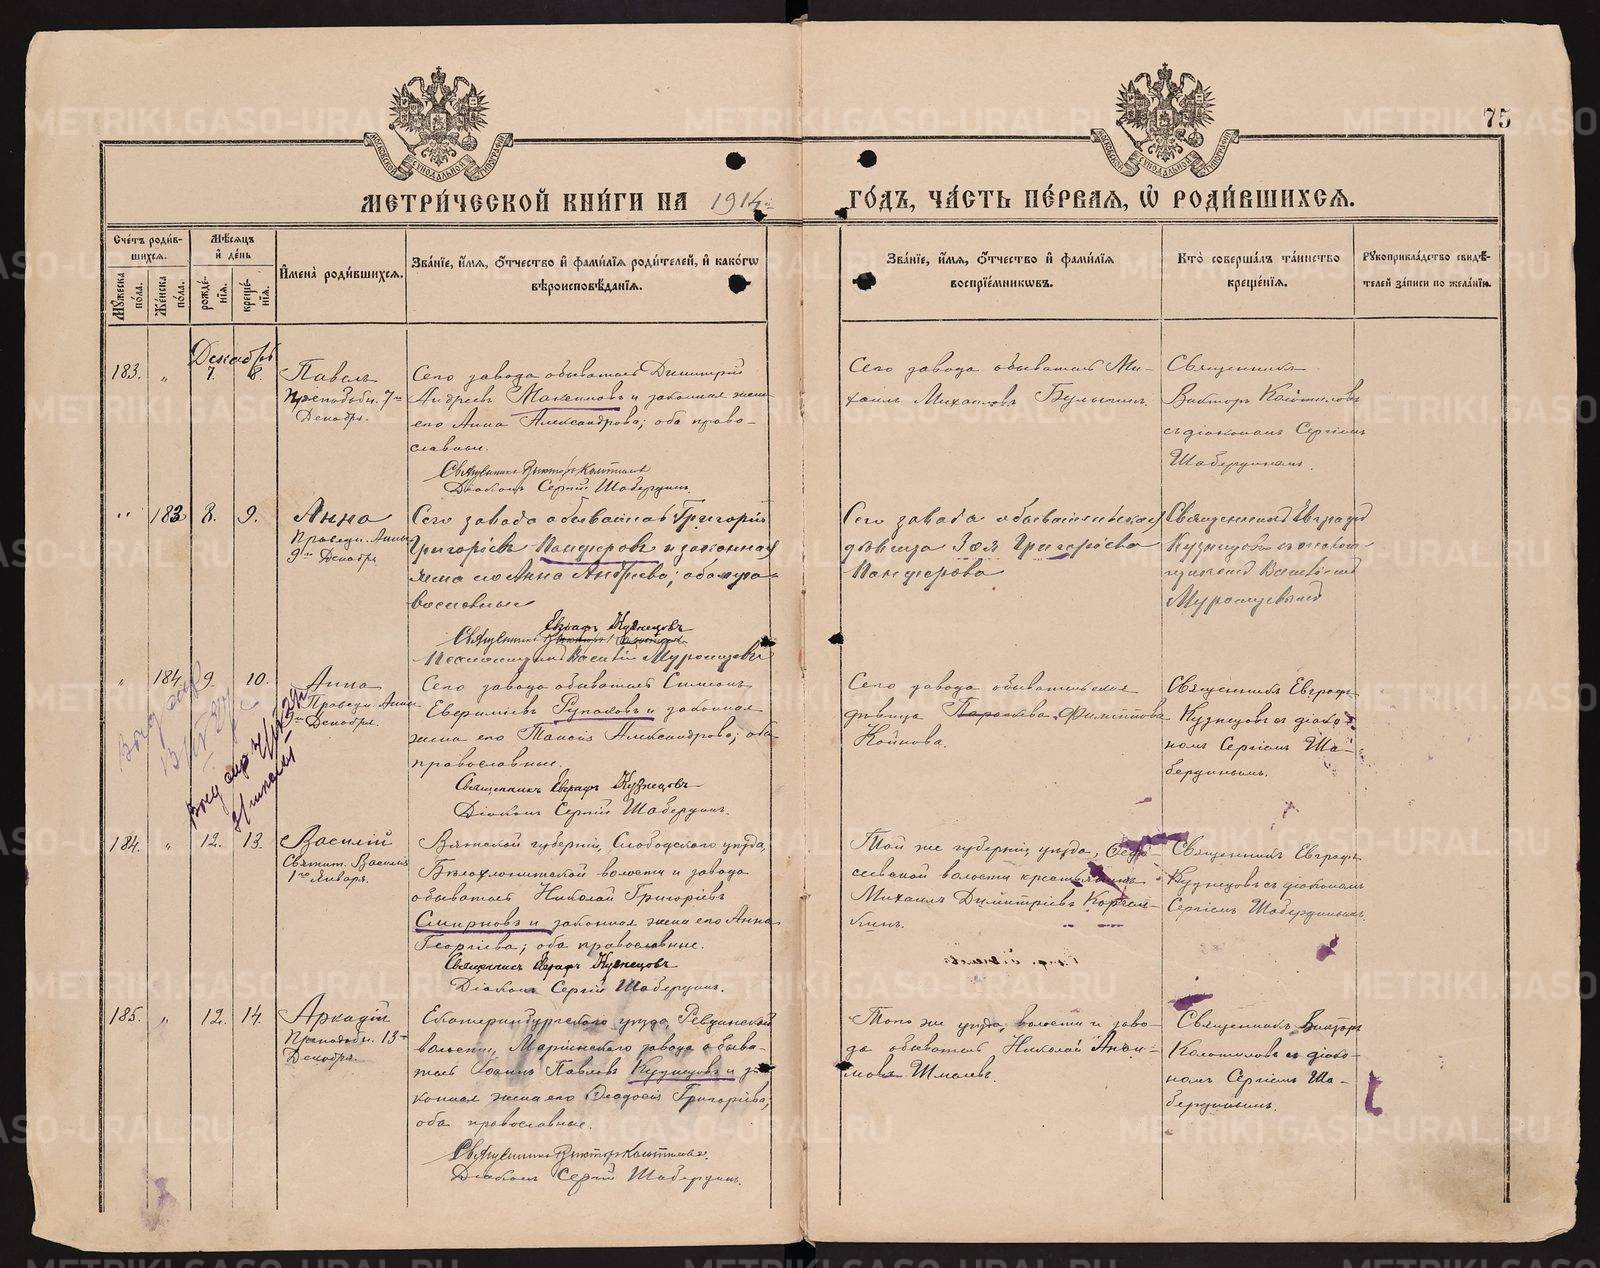 75
МЕТРИ́ЧЕСКОЙ КНИ́ГИ НА 1914й ГО́ДЪ, ЧА́СТЬ ПЕ́РВАЯ, Ѡ҆ РОДИ́ВШИХСЯ.
Сче́тъ роди́в-
шихся.
Мꙋ́жеска по́ла.
Же́нска по́ла.
Мѣ́сяцъ
и҆ де́нь
рожде́-
нїя.
креще́-
нїя.
И҆мена̀ роди́вшихся.
Зва́нїе, и҆́мя, ѻ҆́тчество и҆ фами́лїя роди́телей, и҆ како́гѡ
вѣроисповѣ́данїя.
Зва́нїе, и҆́мя, ѻ҆́тчество и҆ фами́лїя
воспрїе́мникѡвъ.
Кто̀ соверша́лъ та́инство
креще́нїя.
Рꙋкоприкла́дство свидѣ́-
телей за́писи по жела́нїю.
Декабрь
183. „ 7. 8.
Павелъ
Преподобн. 7го
Декабря.
Сего завода обыватель Димитрій
Андреевъ и законная жена
его Анна Александрова; оба право-
славные.
Священникъ Викторъ
Діаконъ Сергій Шабердинъ.
Сего завода обыватель Ми-
хаилъ Михаиловъ Булычевъ.
Священникъ
Викторъ
съ діакономъ Сергіемъ
Шабердинымъ.
„ 183 8. 9.
Анна
Праведн. Анны
9го Декабря
Сего завода обыватель Григорій
Григоріевъ Панферовъ и законная
жена его Анна Андреева; оба пра-
вославные
Евграфъ Кузнецовъ
Священникъ
Псаломщикъ Василій Муромцевъ
Сего завода обывательская
дѣвица Зоя Григоріева
Панферова
Священникъ Евграфъ
Кузнецовъ съ псалом-
щикомъ Василіемъ
Муромцевымъ
„ 184 9. 10.
Анна
Праведн. Анны
Декабря.
Сего завода обыватель Симеонъ
и законная
жена его Таисія Александрова; оба
православные.
Священникъ Евграфъ Кузнецовъ
Діаконъ Сергій Шабердинъ.
Сего завода обывательская
дѣвица Параскева Филиппова
Конькова.
Священникъ Евграфъ
Кузнецовъ съ діако-
номъ Сергіемъ Ша-
бердинымъ.
184. „ 12. 13.
Василій
Святит. Василія
1го Января.
Вятской губерніи, Слободского уѣзда,
Бѣлохолуницкой волости и завода
обыватель Николай Григоріевъ
Смирновъ и законная жена его Анна
Георгіева; оба православные.
Священникъ Евграфъ Кузнецовъ
Діаконъ Сергій Шабердинъ.
Той же губерніи, уѣзда,
волости крестьянинъ
Михаилъ Димитріевъ
Священникъ Евграфъ
Кузнецовъ съ діакономъ
Сергіемъ Шабердинымъ.
185. „ 12. 14.
Аркадій
Преподобн. 13го
Декабря.
Екатеринбургскаго уѣзда, Ревдинской
волости, Маріинскаго завода обыва-
тель Іоаннъ Павловъ Кузнецовъ и за-
конная жена его Ѳеодосія Григоріева;
оба православные.
Священникъ Викторъ
Діаконъ Сергій Шабердинъ.
Того же уѣзда, волости и заво-
да обыватель Николай
Шмелевъ.
Священникъ Викторъ
съ діако-
номъ Сергіемъ Ша-
бердинымъ.
METRIKI.GASO-URAL.RU